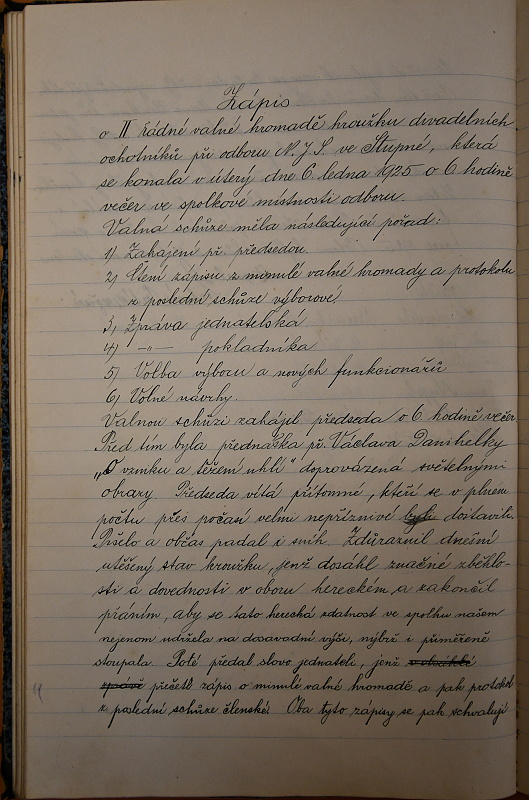 Zápis
o II. řádné valné hromadě kroužku divadelních
ochotníků při odboru N. J. S. ve Stupně, která
se konala v úterý dne 6. ledna 1925 o 6 hodině
večer ve spolkové místnosti odboru.
Valná schůze měla následující pořad:
1) Zahájení př. předsedou.
2) Čtení zápisu z minulé valné hromady a protokolu
z poslední schůze výborové
3) Zpráva jednatelská
4) —„— pokladníka
5) Volba výboru a nových funkcionářů
6) Volné návrhy.
Valnou schůzi zahájil předseda o 6 hodině večer
Před tím byla přednáška př. Václava
„O vzniku a těžení uhlí" doprovázená světelnými
obrazy. Předseda vítá přítomné, kteří se v plném
počtu přes počasí velmi nepříznivé byli dostavili.
Pršelo a občas padal i sníh. Zdůraznil dnešní
utěšený stav kroužku, jenž dosáhl značné zběhlo-
sti a dovednosti v oboru hereckém, a zakončil
přáním, aby se tato herecká zdatnost ve spolku našem
nejenom udržela na dosavadní výši, nýbrž i přiměřeně
stoupala. Poté předal slovo jednateli, jenž
zprávě přečetl zápis o minulé valné hromadě a pak protokol
z poslední schůze členské. Oba tyto zápisy se pak schvalují